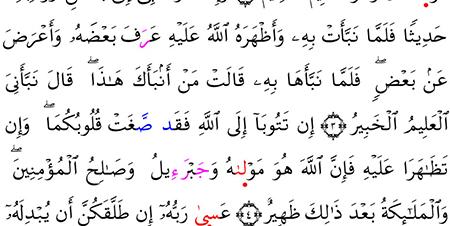 حَدِيثٗا فَلَمَّا نَبَّأَتۡ بِهِۦ وَأَظۡهَرَهُ ٱللَّهُ عَلَيۡهِ عَرَّفَ بَعۡضَهُۥ وَأَعۡرَضَ
عَنۢ بَعۡضٖۖ فَلَمَّا نَبَّأَهَا بِهِۦ قَالَتۡ مَنۡ أَنۢبَأَكَ هَٰذَاۖ قَالَ نَبَّأَنِيَ
ٱلۡعَلِيمُ ٱلۡخَبِيرُ ﴿٣﴾ إِن تَتُوبَآ إِلَى ٱللَّهِ فَقَد صَّغَتۡ قُلُوبُكُمَاۖ وَإِن
تَظَّٰهَرَا عَلَيۡهِ فَإِنَّ ٱللَّهَ هُوَ مَوۡلَىٰهُ وَجَبۡرَءِيلُ وَصَٰلِحُ ٱلۡمُؤۡمِنِينَۖ
وَٱلۡمَلَٰٓئِكَةُ بَعۡدَ ذَٰلِكَ ظَهِيرٌ ﴿٤﴾ عَسَىٰ رَبُّهُۥٓ إِن طَلَّقَكُنَّ أَن يُبۡدِلَهُۥٓ